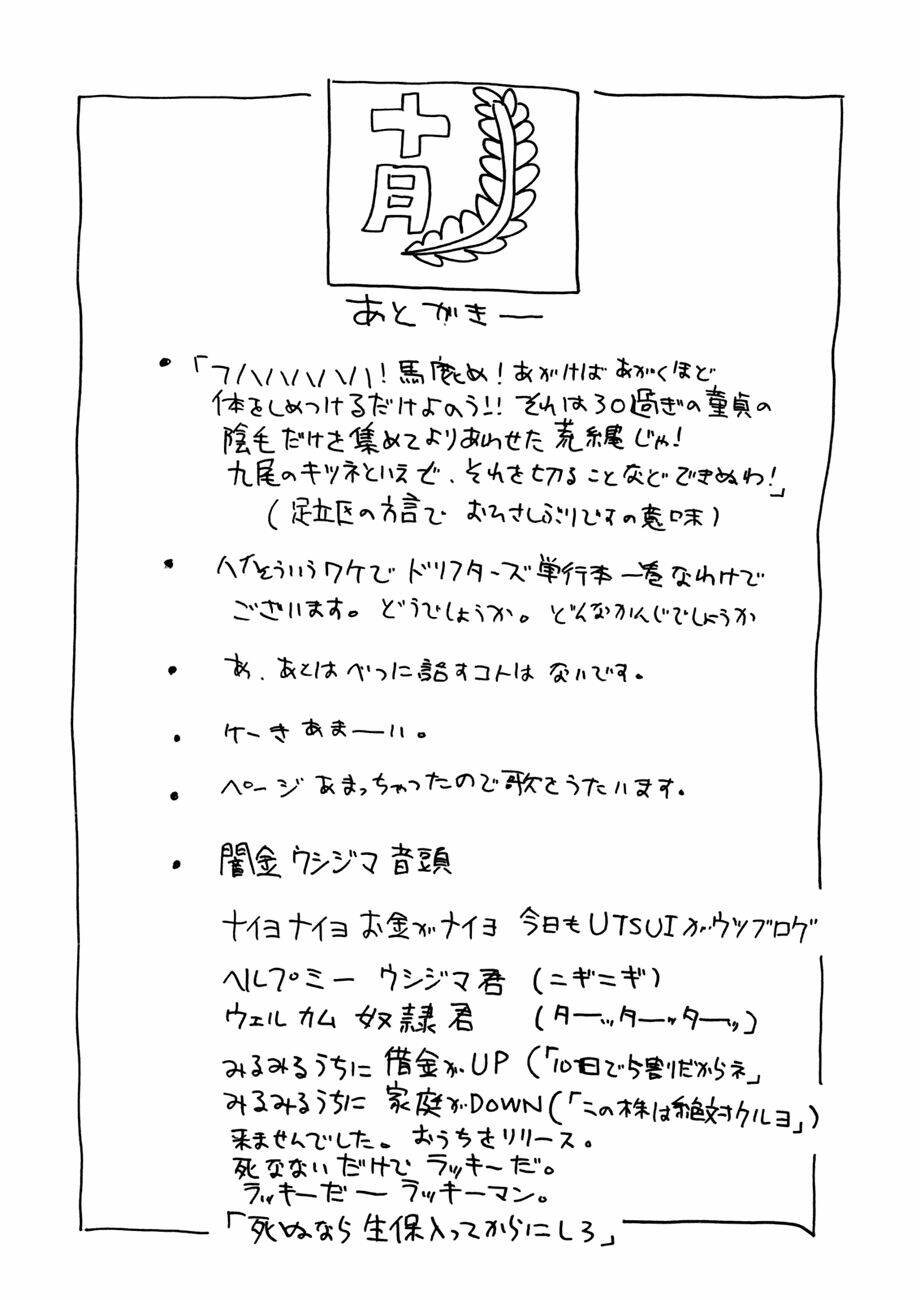 十月
あとがき―
・「フハハハハハ!馬鹿め!あがけばあがくほど
体をしめつけるだけよのう!!それは30過ぎの童貞の
陰毛だけを集めてよりあわせた荒縄じゃ!
九尾のキツネといえど、それを切ることなどできぬわ!」
(足立区の方言でおひさしぶりですの意味)
・ハイそういうワケでドリフターズ単行本一巻なわけで
ございます。どうでしょうか。どんなかんじでしょうか
・あ、あとはべつに話すコトはないです。
・ケーきあまーい。
・ページあまっちゃったので歌をうたいます。
・闇金ウシジマ音頭
ナイヨナイヨお金がナイヨ 今日もUTSUIがウツブログ
ヘルプミー ウシジマ君 (ニギニギ)
ウェルカム 奴隷君 (ターッターッターッ)
みるみるうちに 借金がUP (「10日で5割だからネ」
みるみるうちに 家庭がDOWN (「この株は絶対クルヨ」)
来ませんでした。おうちをリリース。
死なないだけでラッキーだ。
ラッキーだーラッキーマン。
「死ぬなら生保入ってからにしろ」